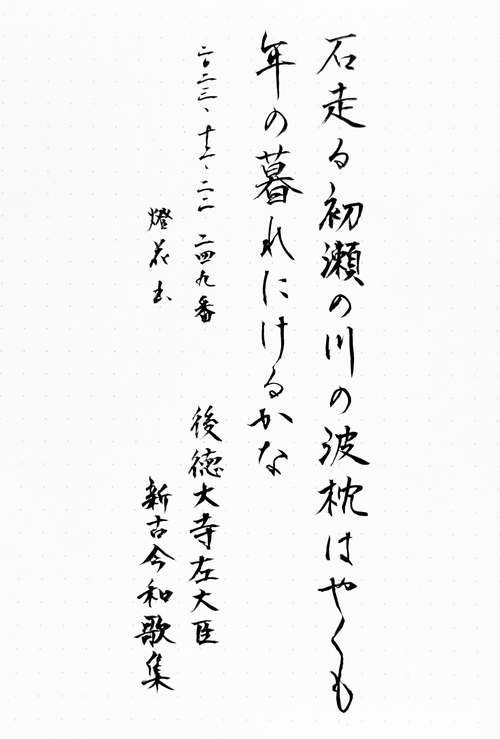 石走る初瀬の川の波枕はやくも
年の暮れにけるかな
二〇二三、十二、二二 二四九番 後徳大寺左大臣
燈花书 新古今和歌集